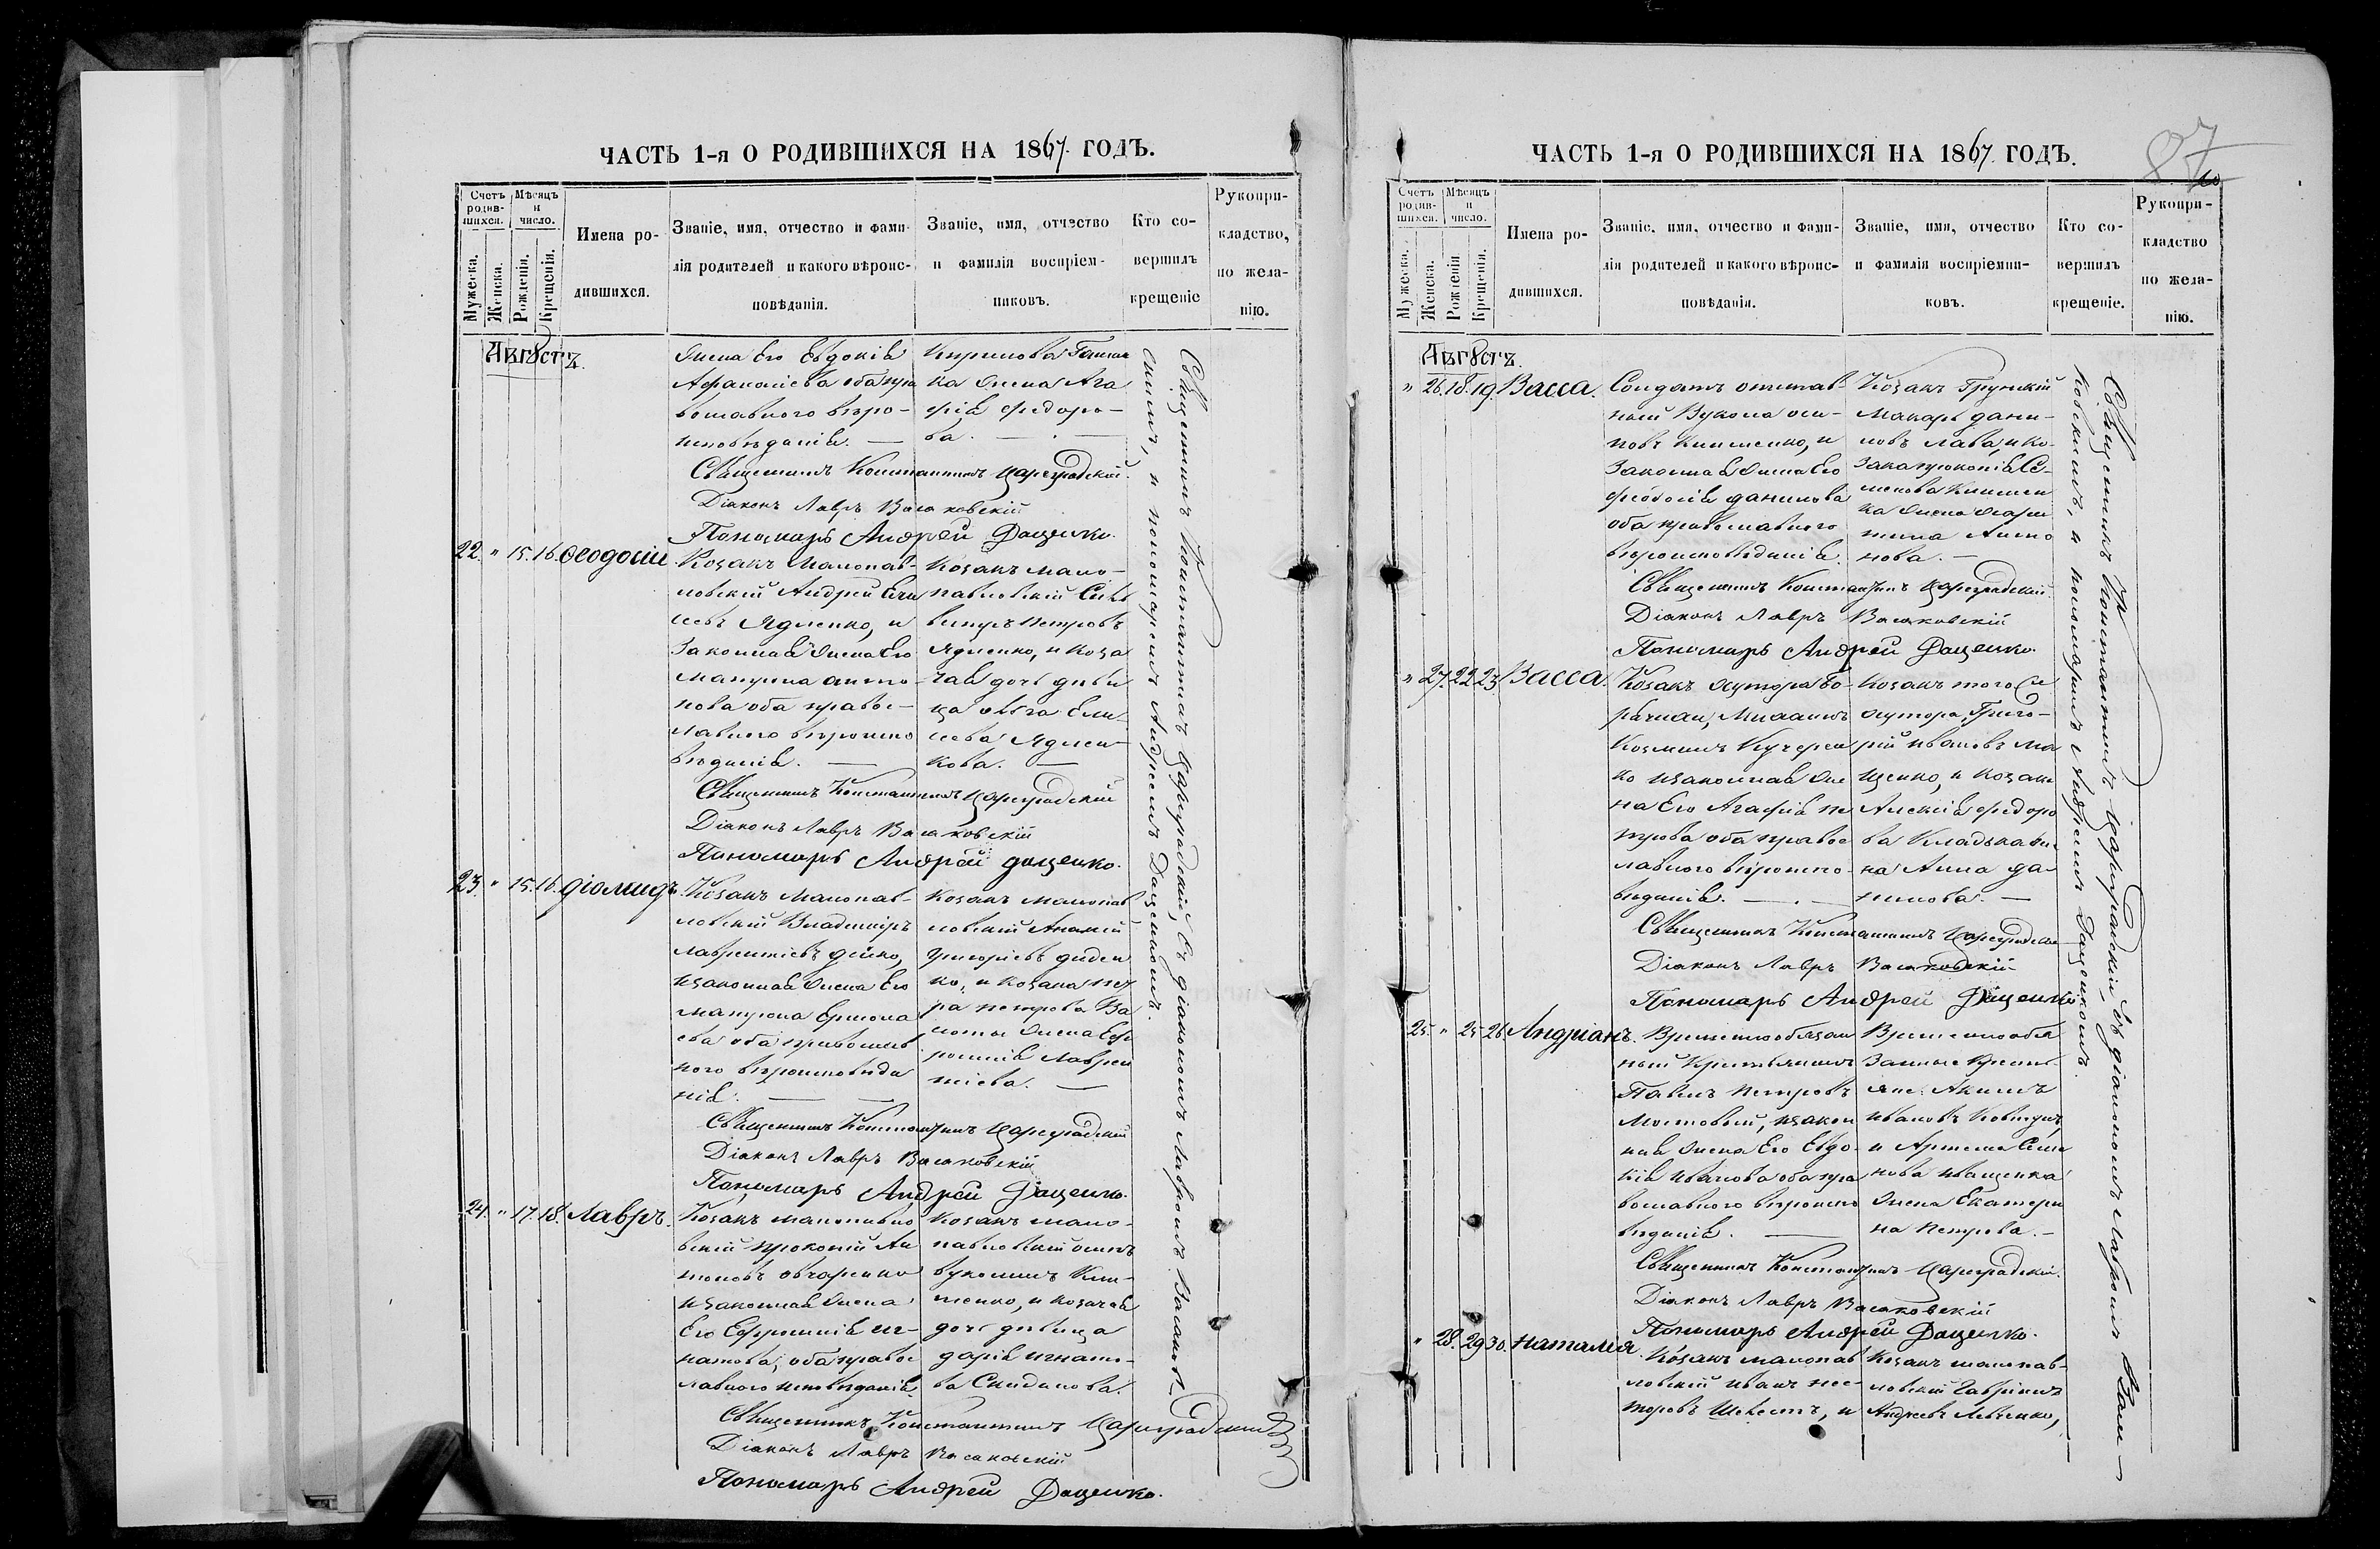 ЧАСТЬ 1-я О РОДИВШИХСЯ НА 1867 ГОДЪ.
Счетъ родив-шихся.
Мѣсяцъ и число.
Мужеска.
Женска.
Рожденія.
Крещенія.
Имена ро-
дившихся.
Званіе, имя, отчество и фами-
лія родителей и какого вѣроис-
повѣданія.
Званіе, имя, отчество
и фамилія воспріем-
никовъ.
Кто со-
вершилъ
крещеніе
Рукопри-
кладство,
по жела-
нію.
Августъ.
жена Его Евдокія
Афанасіева оба пра
вославного вѣро-
исповѣданія.
Кирилова
ка жена Ага
фія Федоро-
ва.
Священникъ Константинъ Цареградскій.
Діаконъ Лавръ Васаковскій
Пономарь Андрей Даценко.
22. " 15. 16. Ѳеодосій
Козакъ Малопав-
ловскій Андрей Ели
сеевъ Ядменко, и
Законная жена Его
Матрина Анто-
нова оба правос-
лавного вѣроиспо
вѣданія.
Козакъ мало-
павловскій Силь
вестръ Петровъ
Ядменко, и Коза
чая дочь дѣви
ца Ольга Ели-
сеева Ядмен-
кова.
Священникъ Константинъ Цареградскій
Діаконъ Лавръ Васаковскій
Пономарь Андрей Даценко.
23. " 15. 16. Діомидъ.
Козакъ Малопав-
ловскій Владиміръ
Лаврентіевъ
изаконная жена Его
Матрона Ермола
ева оба православ
ного вѣроисповѣда
нія.
Козакъ малопав
ловскій Ананій
Григоріевъ Диден
ко, и Козака Пет
ра Петрова Ва
жена Евф
росинія Лаврен
тіева.
Священникъ Константинъ Цареградскій
Діаконъ Лавръ Васаковскій
Пономарь Андрей Даценко.
24. " 17. 18. Лавръ.
Козакъ малопавло
вскій Прокопій Ан
тоновъ Овчаренко
изаконная жена
Его Ефросинія Иг-
натова, оба правос
лавного исповѣданія.
Козакъ мало-
павловскій Осипъ
Вуколовъ Кли-
менко, и козачая
дочь дѣвица
Дарія Игнато-
ва
Священникъ Константинъ Цареградскій
Діаконъ Лавръ Васаковскій
Пономарь Андрей Даценко.
Священникъ Константинъ Цареградскій, съ діакономъ Лавромъ Васаков-
скимъ, и пономаремъ Андреемъ Даценкомъ.
ЧАСТЬ 1-я О РОДИВШИХСЯ НА 1867 ГОДЪ.
87
Счетъ родив-шихся.
Мѣсяцъ и число.
Мужеска.
Женска.
Рожденія.
Крещенія.
Имена ро-
дившихся.
Званіе, имя, отчество и фами-
лія родителей и какого вѣроис-
повѣданія.
Званіе, имя, отчество
и фамилія воспріемни-
ковъ.
Кто со-
вершилъ
крещеніе.
Рукопри-
кладство
по жела-
нію.
Августъ.
" 26. 18. 19. Васса.
Солдатъ отстав-
ный Вукола Оси-
повъ Клименко, и
Законная жена Его
Феодосія Данилова
оба православного
вѣроисповѣданія.
Козакъ Грунскій
Макаръ Дани-
ловъ Лава, и Ко-
зака Прокопія Се-
менова Климен
ка жена Мар
тина Анто
нова.
Священникъ Константинъ Цареградскій.
Діаконъ Лавръ Васаковскій
Пономарь Андрей Даценко.
" 27. 22. 23. Васса.
Козакъ Хутора Бо-
Козминъ Кучерен
ко изаконная же
на Его Агафія Пе
трова оба правос
лавного вѣроиспо-
вѣданія.
Козакъ того же
хутора, Григо-
рій Ивановъ Ма
щенко, и Козака
Алексія Федоро
ва
на Анна Да-
нилова.
Священникъ Константинъ Цареградскій
Діаконъ Лавръ Васаковскій
Пономарь Андрей Даценко
25. " 25. 26. Андріанъ.
Временнообязан
ный Крестьянинъ
Павелъ Петровъ
Мостовый, изакон
ная жена Его Евдо-
кія Иванова оба пра
вославного вѣроиспо
вѣданія.
Временнообя
занные Кресть-
яне: Акимъ
Ивановъ
и Артема Семе
нова Иващенка
жена Екатери
на Петрова.
Священникъ Константинъ Цареградскій.
Діаконъ Лавръ Васаковскій
Пономарь Андрей Даценко.
" 28. 29. 30. Наталія.
Козакъ малопав
ловскій Иванъ Нес-
торовъ Шевель, и
Козакъ малопав-
ловскій Гавріилъ
Андреевъ Левченко,
Священникъ Константинъ Цареградскій, съ діакономъ Лавромъ Васа-
ковскимъ, и пономаремъ Андреемъ Даценкомъ.